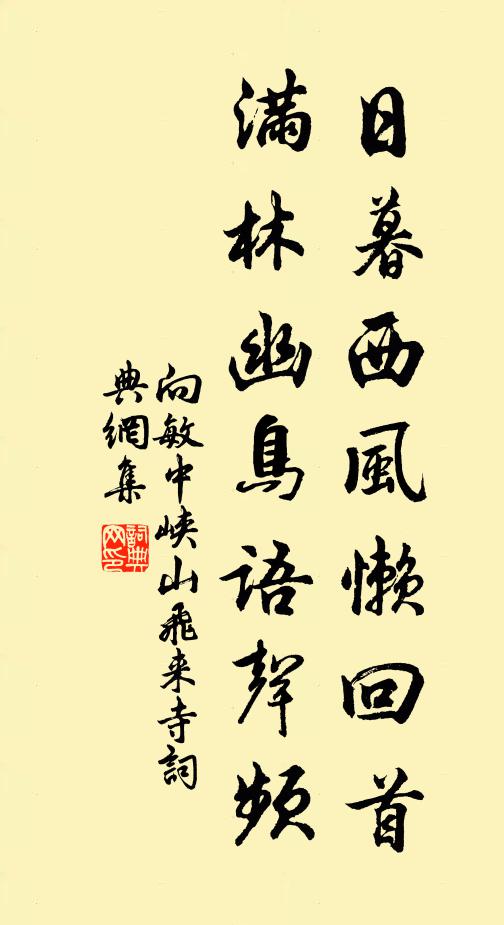 日暮西風懶回首
滿林幽鳥語聲頻
向敏中峽山飛来寺詞
典網集
詞典
网印